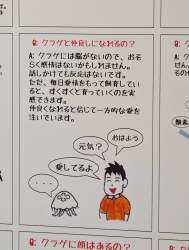 Q: クラゲと仲良しになれるの？
A: クラゲには脳がないので、おそ
らく感情はないかもしれません。
話しかけても反応はないです。
ただ、毎日愛情をもって飼育してい
ると、すくすくと育っていくのを実
感できます。
仲良くなれると信じて一方的な愛を
注いでいます。
おはよう
元気？
愛してるよ
・・・
Q: クラゲに顔はあるの？